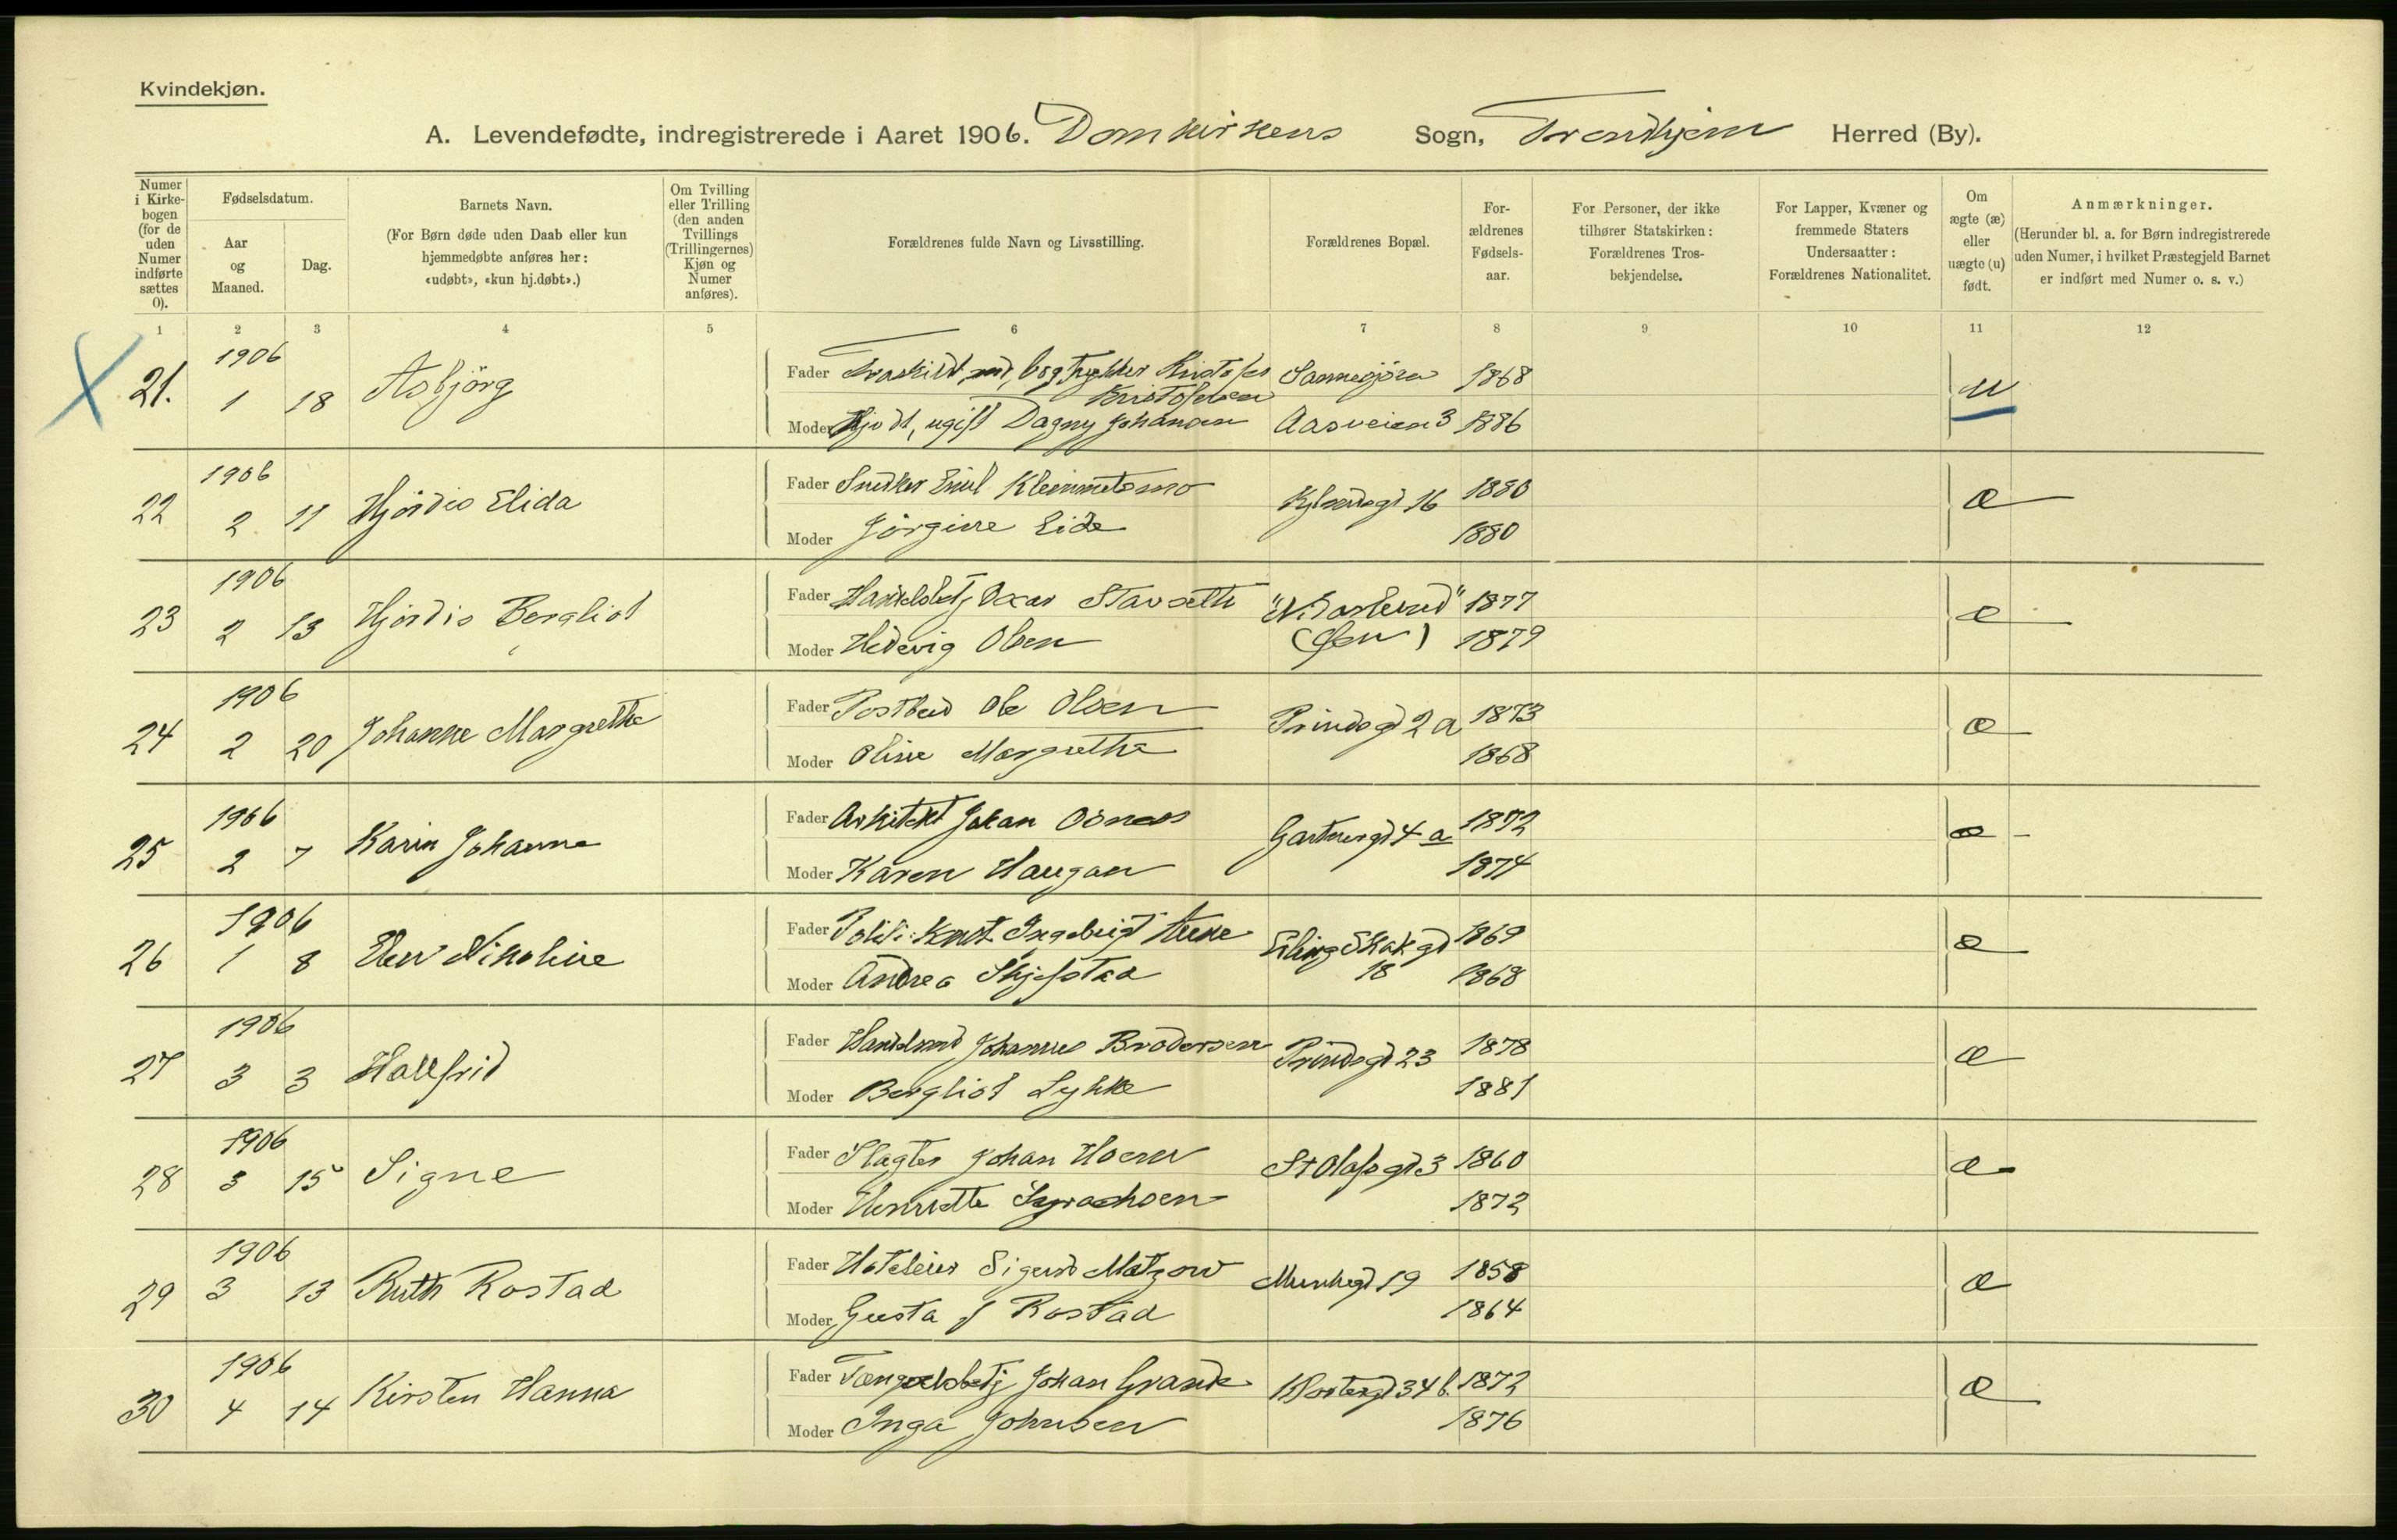 Kvindekjøn.
A. Levendefødte, indregistrerede i Aaret 1906. Domkirkens Sogn, Trondhjem Herred (By).
Numer i Kirke-bogen (for de uden Numer indførte sættes 0).
Fødselsdatum.
Aar og Maaned.
Dag.
Barnets Navn.
(For Børn døde uden Daab eller kun hjemmedøbte anføres her: «udøbt», «kun hj.døbt».)
Om Tvilling eller Trilling (den anden Tvillings (Trillingernes) Kjøn og Numer anføres).
Forældrenes fulde Navn og Livsstilling.
Forældrenes Bopæl.
For-ældrenes Fødsels-aar.
For Personer, der ikke tilhører Statskirken: Forældrenes Tros-bekjendelse.
For Lapper, Kvæner og fremmede Staters Undersaatter: Forældrenes Nationalitet.
Om ægte (æ) eller uægte (u) født.
Anmærkninger.
(Herunder bl. a. for Børn indregistrerede uden Numer, i hvilket Præstegjeld Barnet er indført med Numer o. s. v.)
1 2 3 4 5 6 7 8 9 10 11 12
21. 1906 1 18 Asbjörg
Fader Fraskilt Bogtrykker Kristofer Kristofersen 1868 u
Moder ugift Dagny Johansen Aasveien 3 1886
22 1906 2 11 Hjördis Elida
Fader Snedker Emil Klemmetsmo 16 1880 æ
Moder Jörgine Eide 1880
23 1906 2 13 Hjördis Bergliot
Fader Handelsbetj Oscar Stavseth 1877 æ
Moder Hedevig Olsen 1879
24 1906 2 20 Johanne Margrethe
Fader Postbud Ole Olsen Prindsgd 2 a 1873 æ
Moder Oline Margrethe 1868
25 1906 2 7 Karin Johanne
Fader Arkitekt Johan Osness Gartnergd 4 a 1872 æ
Moder Karen Haugan 1874
26 1906 1 8 Ellen Nikoline
Fader Politi-Konst. Ingebrigt Aune Erling Skakgd 18 1869 æ
Moder Andrea Skjefstad 1868
27 1906 3 3 Hallfrid
Fader Handelsmd Johannes Brodersen Prindsgd 23 1878 æ
Moder Bergliot Lykke 1881
28 1906 3 15 Signe
Fader Slagter Johan Hoem St Olafsgd 3 1860 æ
Moder Henriette 1872
29 1906 3 13 Ruth Rostad
Fader Hoteleier Sigurd Matzow Munkegd 19 1858 æ
Moder Gusta J Rostad 1864
30 1906 4 14 Kirsten Hanna
Fader Fængselsbetj Johan Grande Klostergd 34 b. 1872 æ
Moder Inga Johnsen 1876